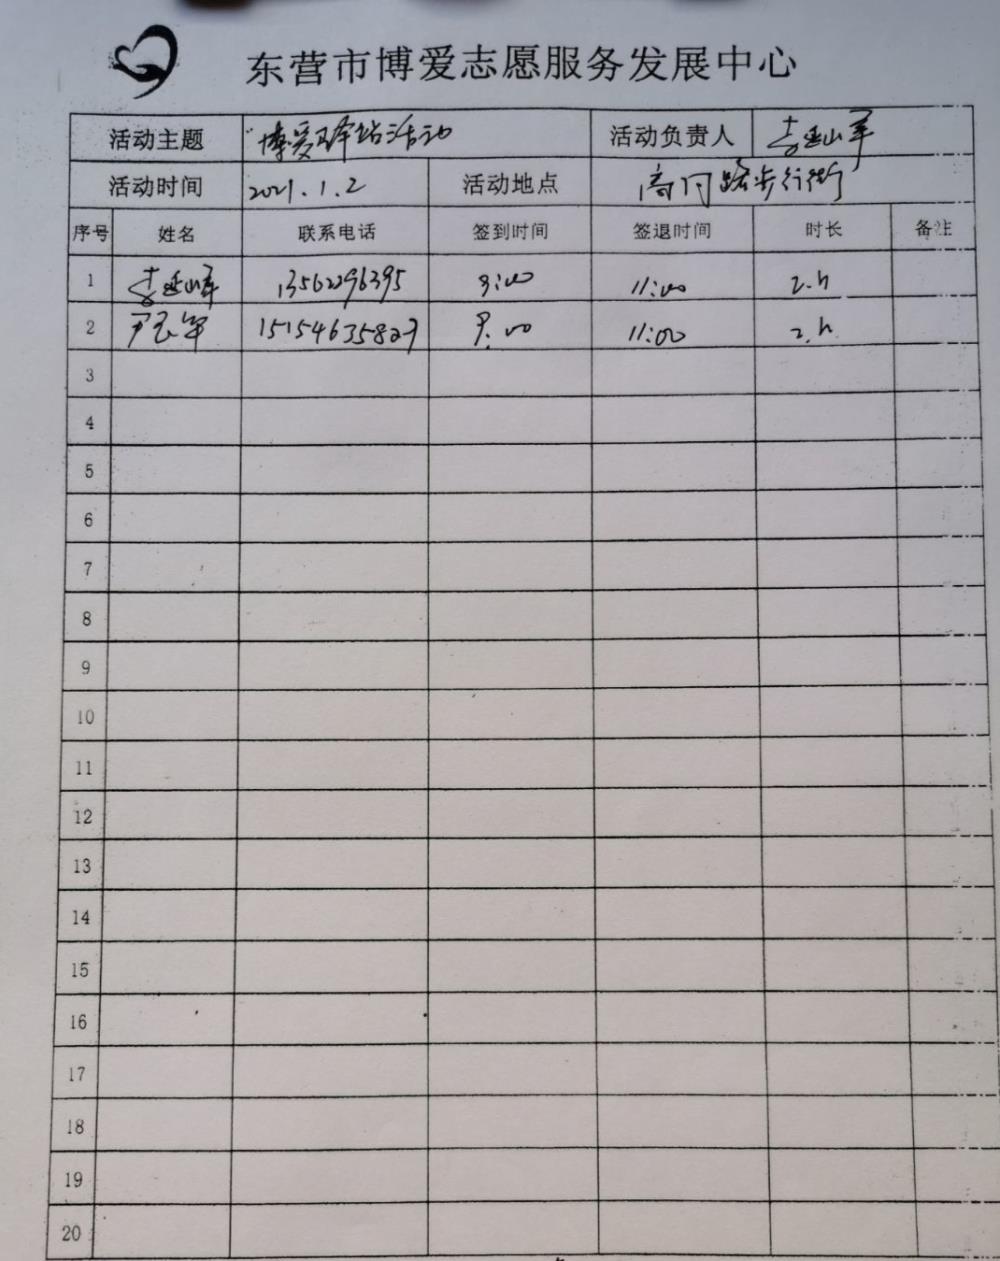 东营市博爱志愿服务发展中心
活动主题 博爱驿站活动 活动负责人 李延山军
活动时间 2021.1.2 活动地点 商门路步行街
序号 姓名 联系电话 签到时间 签退时间 时长 备注
1 李 13562296395 9:00 11:00 2.h
2 尹 军 15154635827 9:00 11:00 2.h
3
4
5
6
7
8
9
10
11
12
13
14
15
16
17
18
19
20